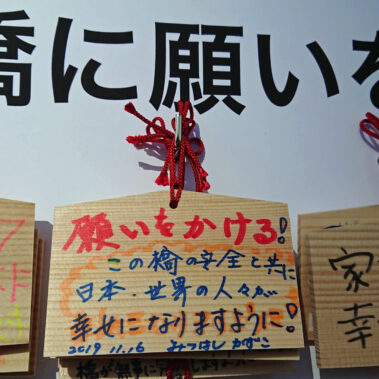 橋に願いを
願いをかける!
この橋の安全と共に
日本・世界の人々が
幸せになりますように!
2019 11.16 みつはし かずこ
橋が無事に
家
幸